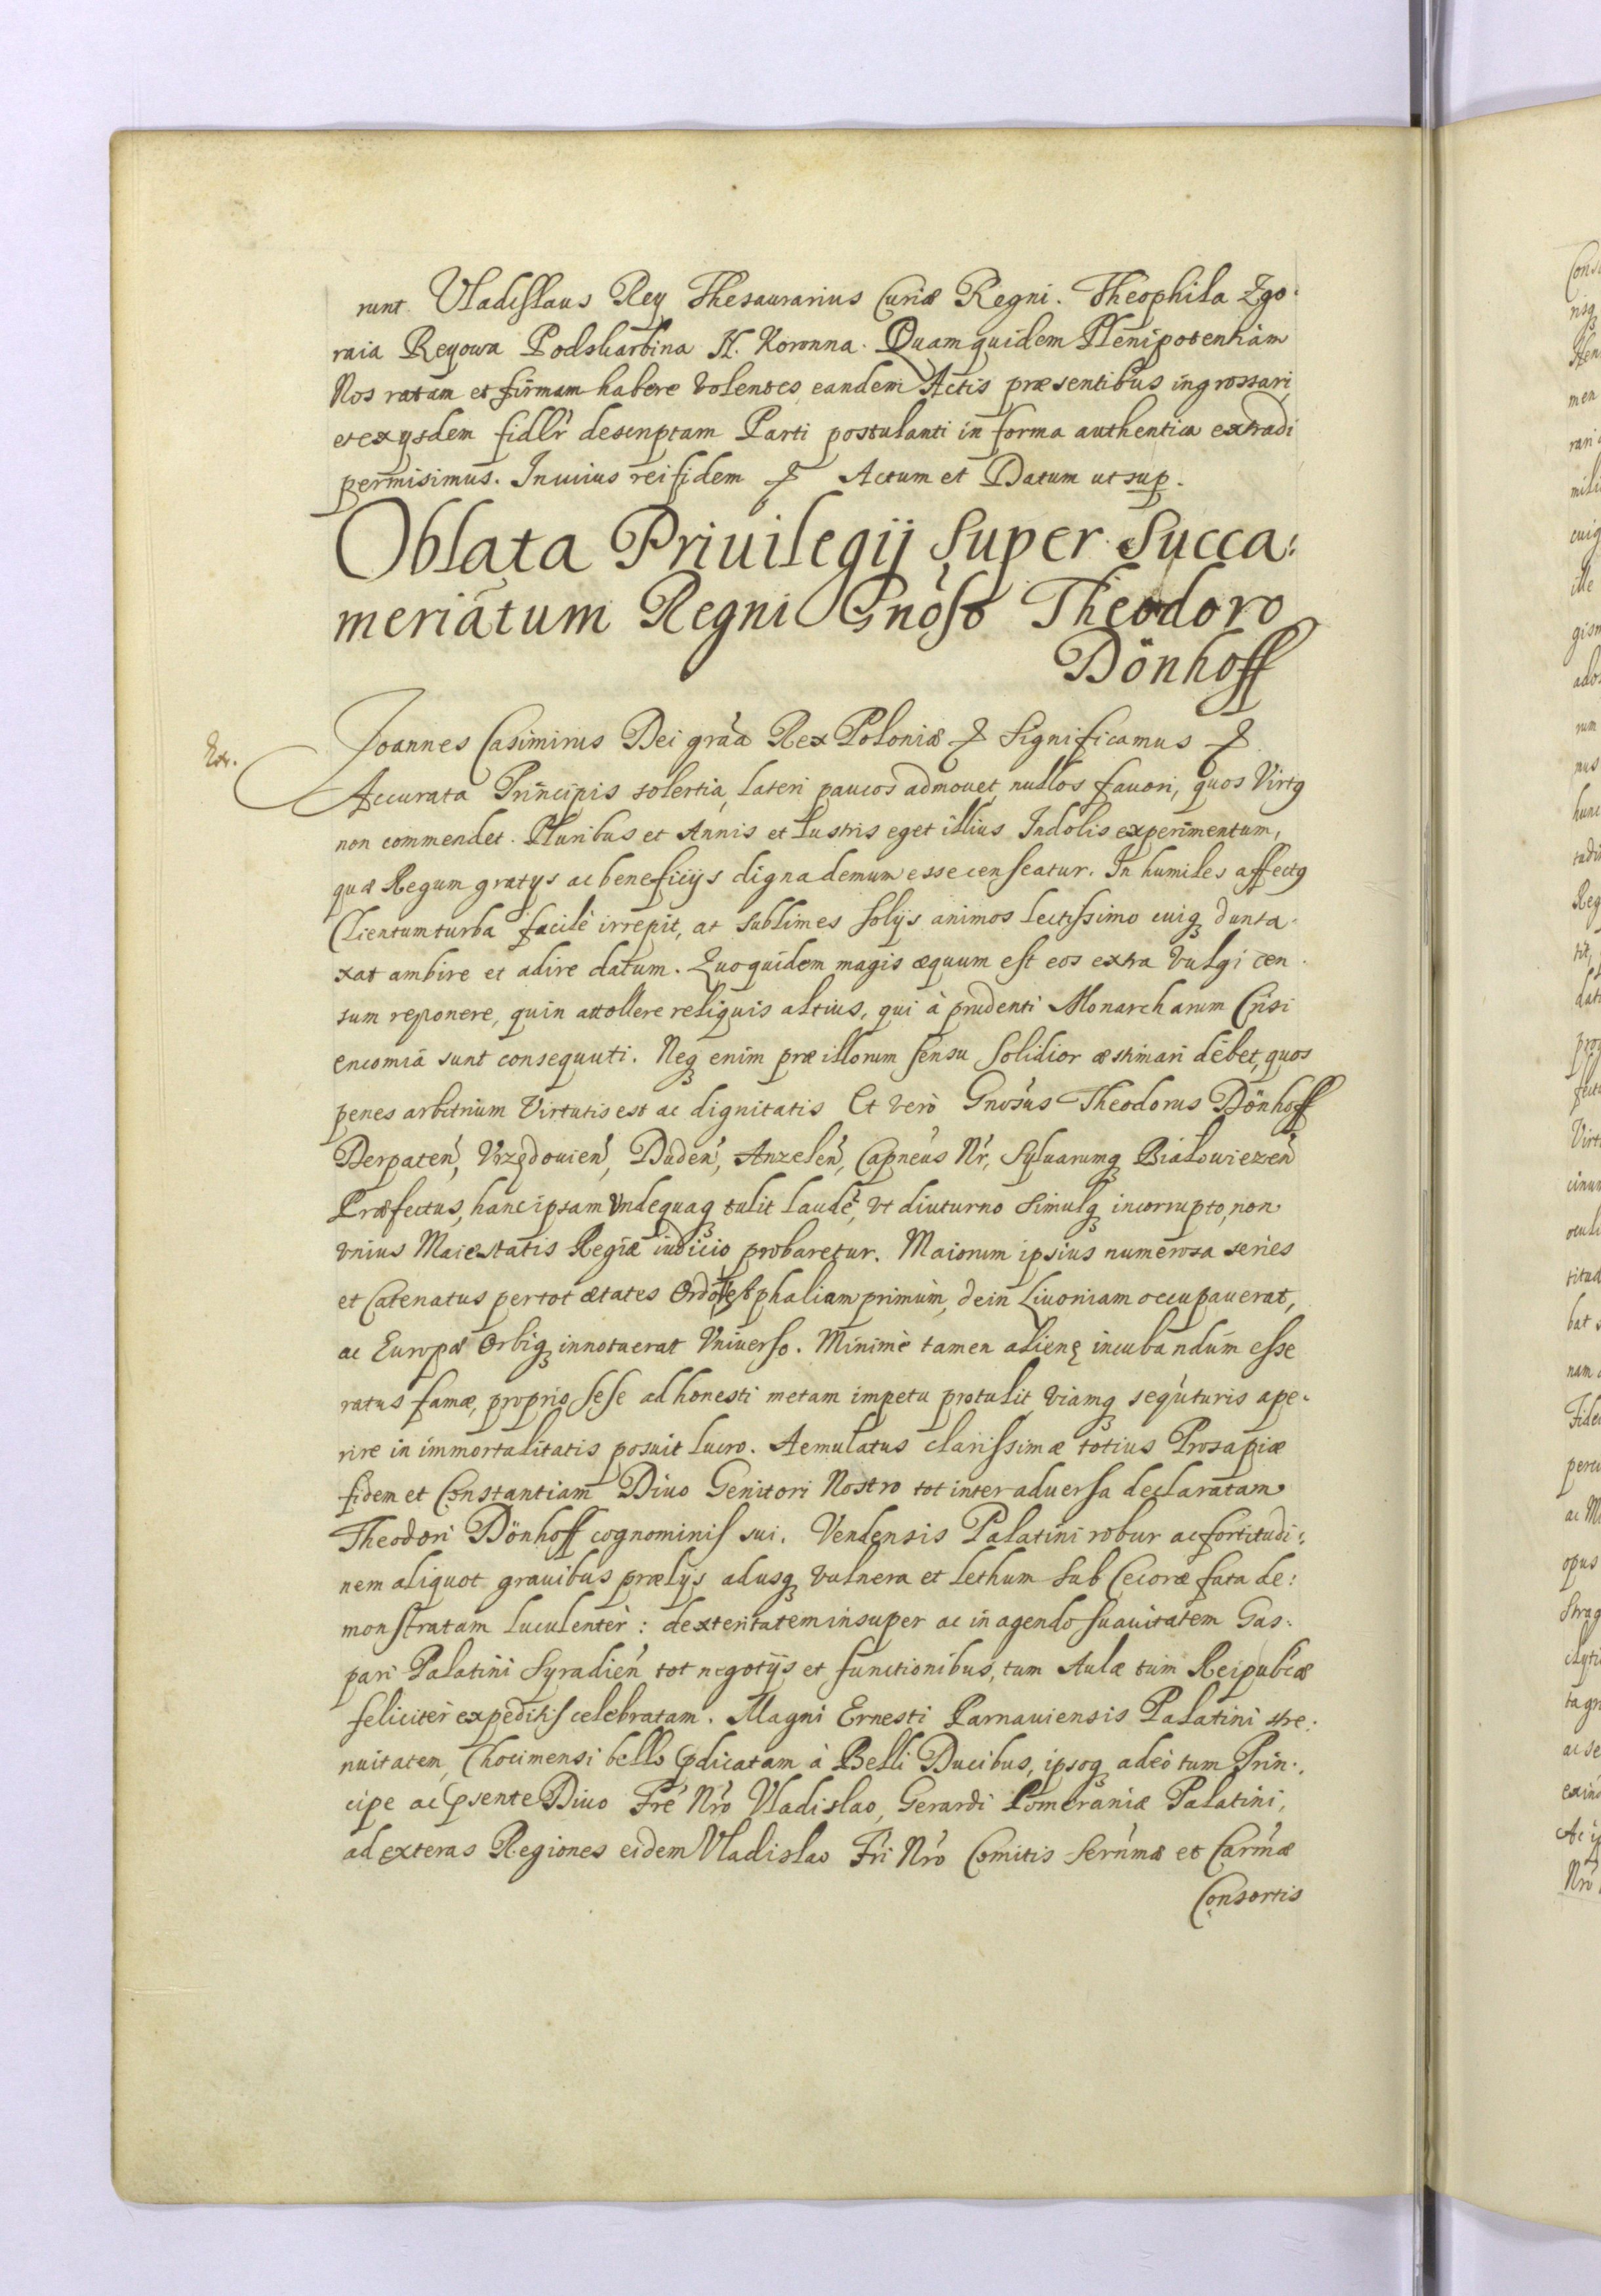 runt. Vladislaus Rey Thesaurarius Curiæ Regni. Theophila Zgo-
raia Reyowa Podskarbina N. Koronna. Quam quidem Plenipotentiam
Nos ratam et firmam habere volentes, eandem Actis præsentibus ingrossari,
et ex ijsdem fidlr descriptam Parti postulanti in forma authentica extradi
permisimus. In cuius rei fidem & Actum et Datum ut sup.
Oblata Priuilegij super Succa:
meriatum Regni Gnoso Theodoro
Dönhoff
Joannes Casimirus Dei gra͞a Rex Poloniæ & Significamus &
Accurata Principis solertia, lateri paucos admouet, nullos fauori, quos Virtꝰ
non commendet. Pluribus et Annis et lustris eget illius Indolis experimentum,
quæ Regum gratijs ac beneficijs digna demum esse censeatur. In humiles affectꝰ
Clientum turba facilè irrepit, at sublimes solijs animos lectissimo cuiqꝫ dunta-
xat ambire et adire datum. Quo quidem magis æquum est eos extra vulgi cen-
sum reponere, quin attollere reliquis altius, qui à prudenti Monarcharum Crisi
encomia sunt consequuti. Neqꝫ enim præ illorum sensu, solidior æstimari debet, quos
penes arbitrium Virtutis est ac dignitatis Et verò Gnosus Theodorus Dönhoff
Derpaten, Vrzędouien, Duden, Anzelen, Capneus Nr, Syluarumqꝫ Białowiezen
Præfectus, hanc ipsam vndequaqꝫ tulit laudẽ, vt diuturno simulqꝫ incorrupto, non
vnius Maiestatis Regiæ iudicio probaretur. Maiorum ipsius numerosa series
et Catenatus per tot ætates Ordo Vestphaliam primùm, dein Liuoniam occupauerat,
ac Europæ Orbiqꝫ innotuerat Vniuerso. Minimè tamen alienę incubandum esse
ratus famæ, proprio sese ad honesti metam impetu protulit, viamqꝫ sequuturis ape-
rire in immortalitatis posuit lucro. Aemulatus clarissimæ totius Prosapiæ
fidem et Constantiam Diuo Genitori Nostro tot inter aduersa declaratam
Theodori Dönhoff cognominis sui. Vendensis Palatini robur ac fortitudi:
nem aliquot grauibus prælijs adusqꝫ vulnera et lethum sub Cecoræ fata de:
monstratam luculenter: dexteritatem insuper ac in agendo suauitatem Gas:
pari Palatini Syradien tot negotijs et functionibus, tum Aulæ tum Reipublcæ
feliciter expeditis celebratam. Magni Ernesti Parnauiensis Palatini stre:
nuitatem, Chocimensi bello p̃dicatam à Belli Ducibus, ipsoqꝫ adeò tum Prin-
cipe ac p̃sente Diuo Fre Nro Vladislao, Gerardi Pomeraniæ Palatini,
ad exteras Regiones eidem Vladislao Fri Nro Comitis Sernmæ et Carmæ
Consortis